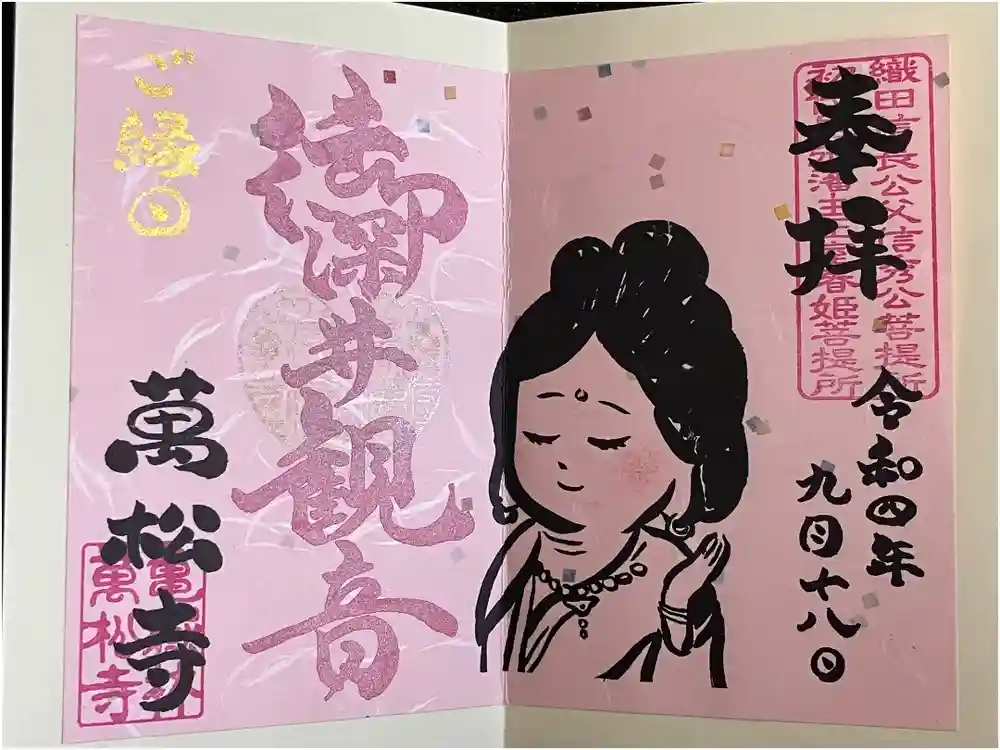 奉拝
織田信長公父信秀公菩提所
藩主 春姫菩提所
令和四年
九月十八日
御深井観音
ご縁日
萬松寺
萬松寺